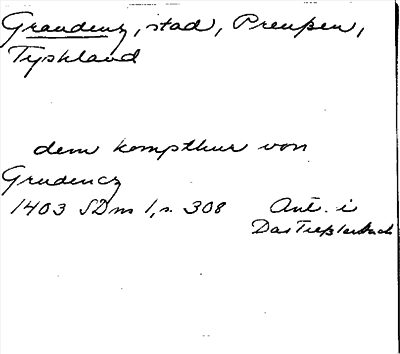 Graudenz, stad, Preußen,
Tyskland
dem kompthur von
Grudencz
1403 SDns 1, s. 308 Ant. i
Das Treßlerbuch